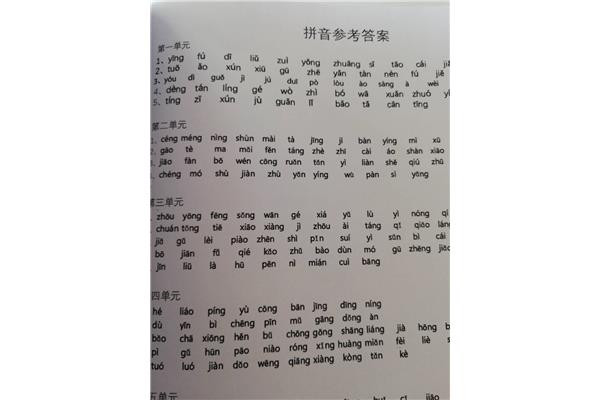 拼音参考答案
第一单元
1、yīng fú dī liǔ zuì yǒng zhuāng sī tāo cái jiǎ
2、tuō ǎo xún xiū gū zhē yān tān nèn fú jiē
3、yòu dì guō jì jú duī pò lòu ào sàng à wèi
4、dèng tán líng gé wò zhì bó wā xuān zhuó yì
5、tíng zī xún jù guān lǐ bāo tā cān tīng
第二单元
céng méng nìng shùn mài tà jīng jì bàn yíng mì xū
2、gāo tè ma mōi fēn táng zhè zhī cài áo shàn xiǎo
jiāo fàn bō wén cōng ruǎn tān yì lián shě qiú zhū
chéng mó shù jiàn zhù yān yíng wū pàn sì yōng
第三单元
zhōu yōng fēng sōng wān gé xiá yā lù yì nóng qí
chuán tōng tiě xiāo xiàng jì zhǒu ài táng qī qiāo láng
jiā gū lèi piào zhēn shì pīn suí yì sūn bì cái
bō jiān fū qié kāo zhǔ bào dùn mó gū zhēng jiāo
jīn liū là hū pēn nì mián cuī bāng
四单元
hé liáo píng yù cōng bān jīng dīng níng
dù yīn bì chēng pīn mǔ gāng dǒng àn
bāo chā xiōng hěn bū chōng gōng shāng liáng jià hōng
pì gū hūn pāo niào róng xīng huàng miǎn fèi liè
tuó luó jiàn dǎo wēng qiāng xiàng kòng tǎn kè
五单元
jiāo